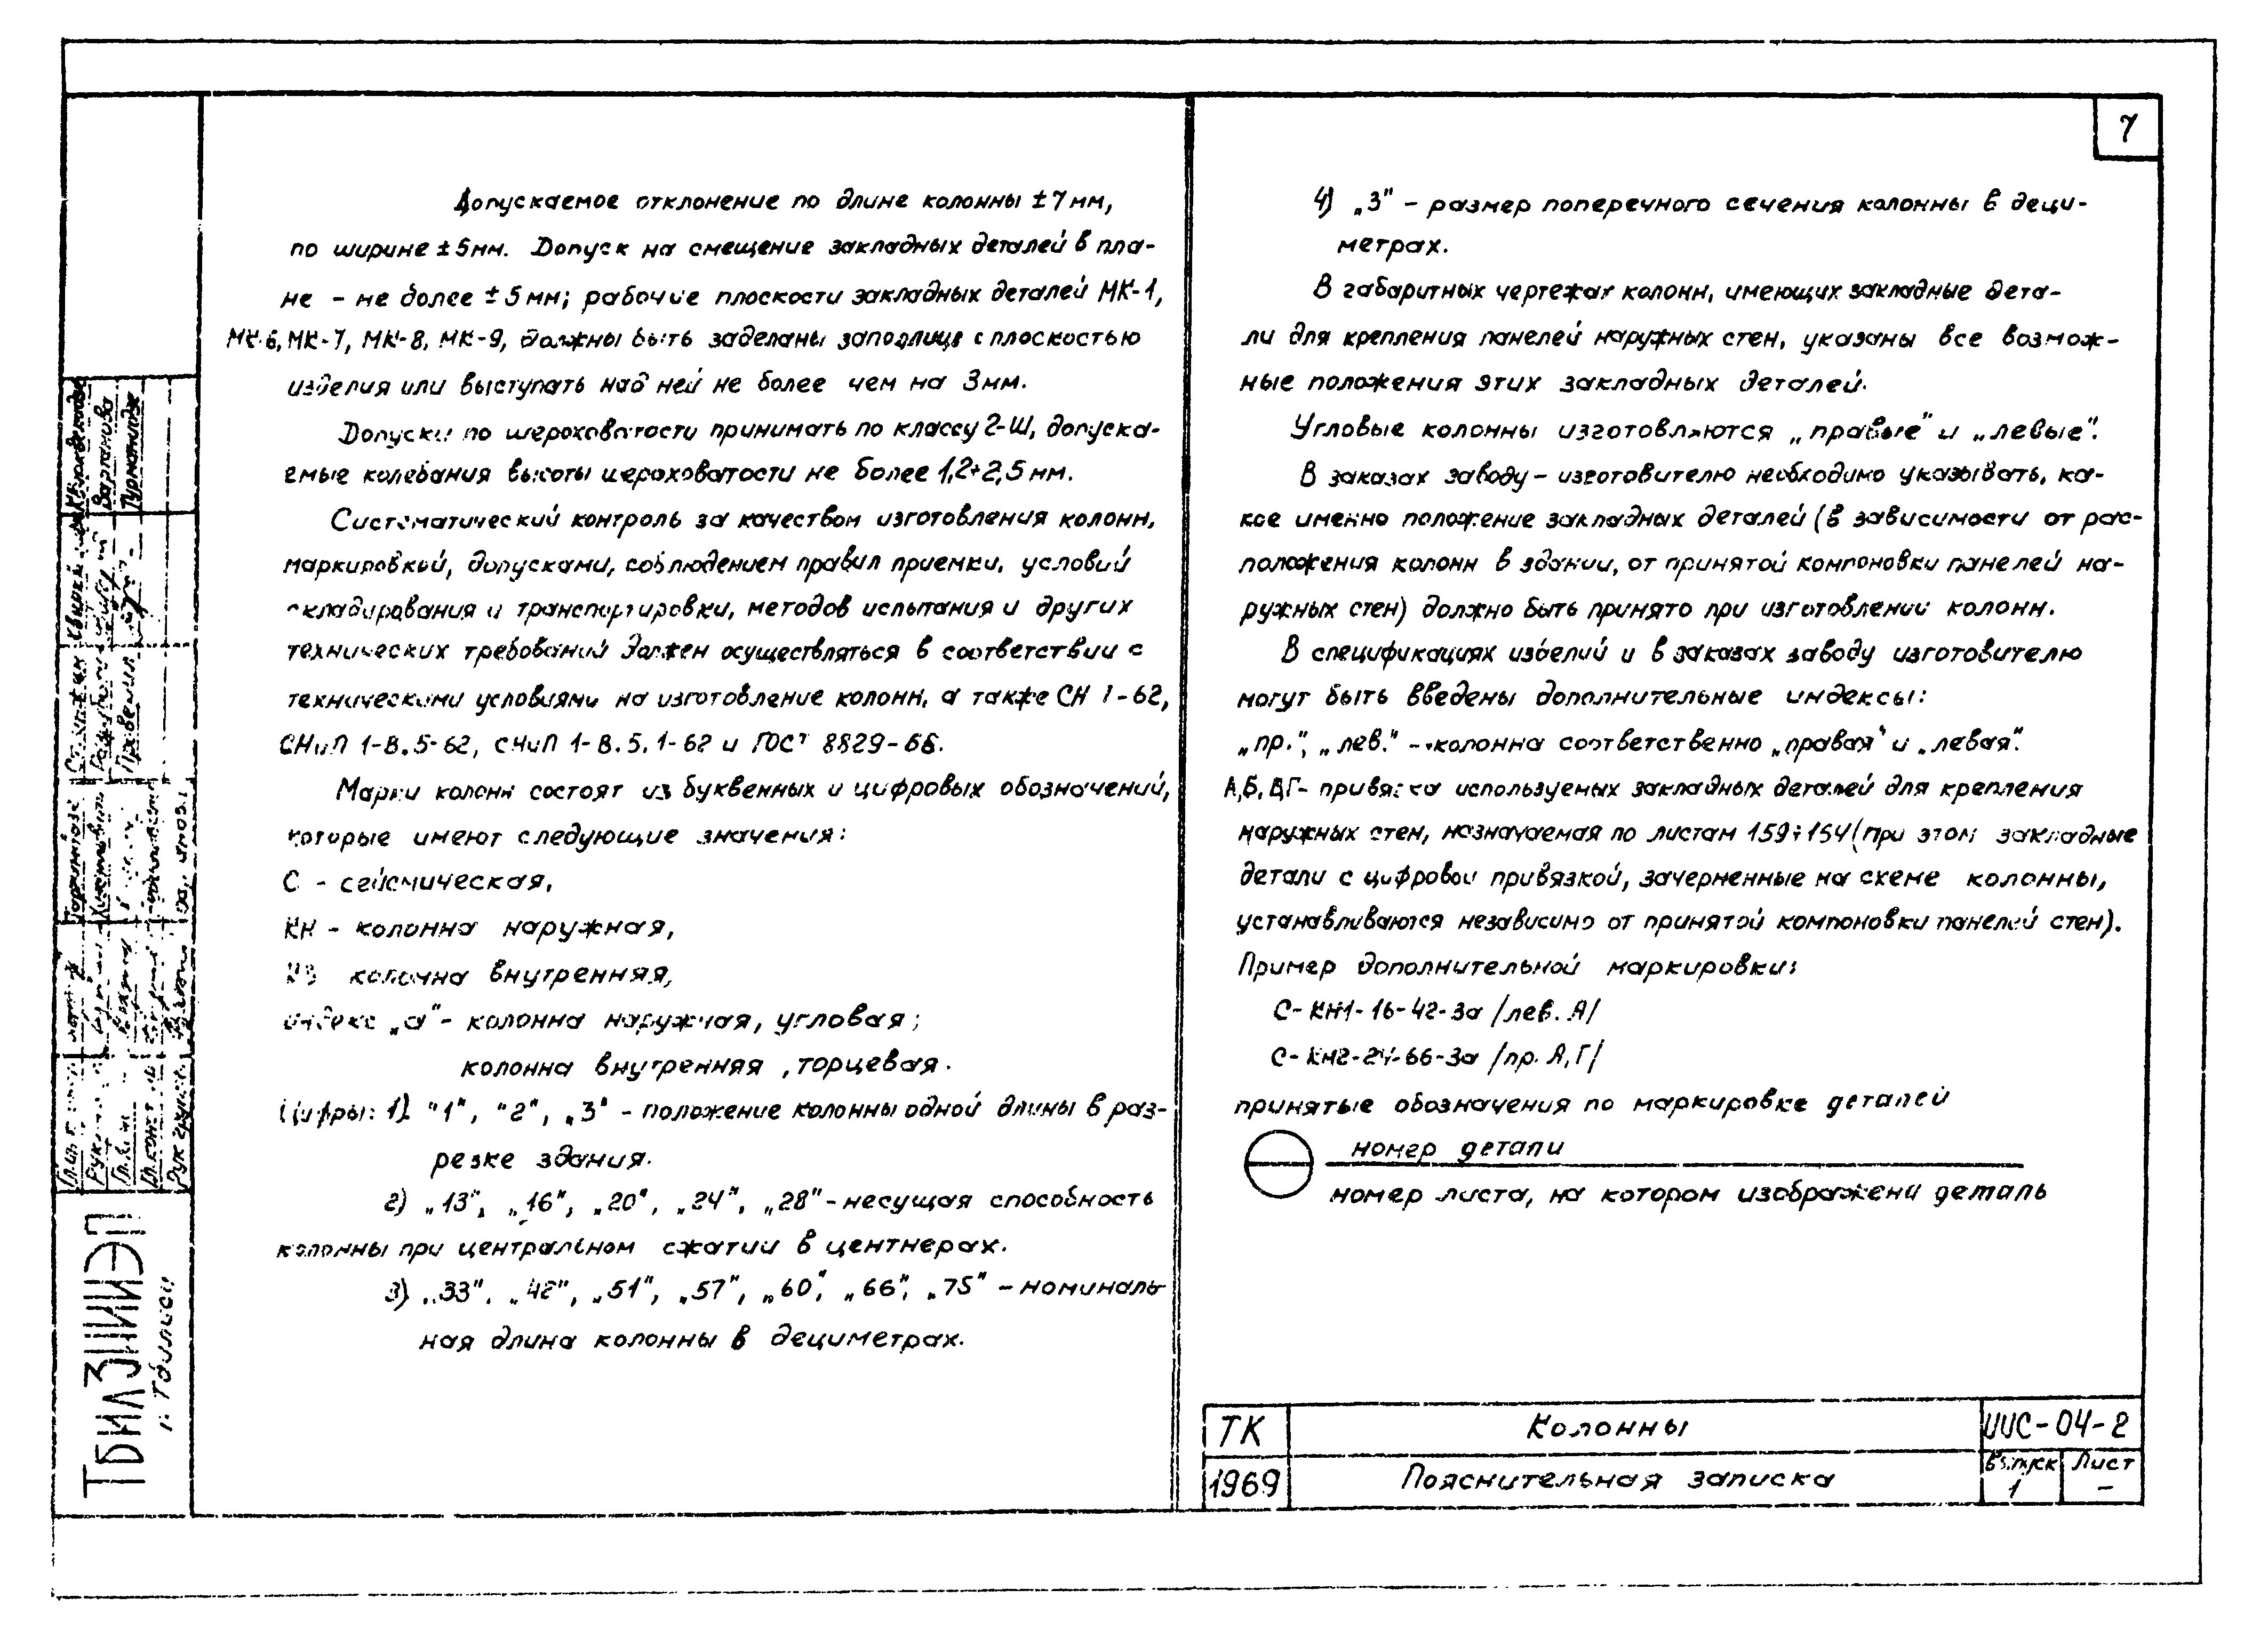 7
Допускаемое отклонение по длине колонны ±7мм,
по ширине ±5мм. Допуск на смещение закладных деталей в пла-
не - не более ±5мм; рабочие плоскости закладных деталей МК-1,
МК-6, МК-7, МК-8, МК-9, должны быть заделаны заподлицо с плоскостью
изделия или выступать над ней не более чем на 3мм.
Допуски по шероховатости принимать по классу 2-Ш, допуска-
емые колебания высоты шероховатости не более 1,2÷2,5мм.
Систематический контроль за качеством изготовления колонн,
маркировкой, допусками, соблюдением правил приемки, условий
складирования и транспортировки, методов испытания и других
технических требований должен осуществляться в соответствии с
техническими условиями на изготовление колонн, а также СН 1-62,
СНиП 1-В.5-62, СНиП 1-В.5.1-62 и ГОСТ 8829-66.
Марки колонн состоят из буквенных и цифровых обозначений,
которые имеют следующие значения:
С - сейсмическая,
КН - колонна наружная,
КВ колонна внутренняя,
индекс „а" - колонна наружная, угловая;
колонна внутренняя, торцевая.
Цифры: 1) "1", "2", „3" - положение колонны одной длины в раз-
резке здания.
2) „13", „16", „20", „24", „28" - несущая способность
колонны при центральном сжатии в центнерах.
3) „33", „42", „51", „57", „60", „66", „75" - номиналь-
ная длина колонны в дециметрах.
4) „3" - размер поперечного сечения колонны в деци-
метрах.
В габаритных чертежах колонн, имеющих закладные дета-
ли для крепления панелей наружных стен, указаны все возмож-
ные положения этих закладных деталей.
Угловые колонны изготовляются „правые" и „левые".
В заказах заводу - изготовителю необходимо указывать, ка-
кое именно положение закладных деталей (в зависимости от рас-
положения колонн в здании, от принятой компоновки панелей на-
ружных стен) должно быть принято при изготовлении колонн.
В спецификациях изделий и в заказах заводу изготовителю
могут быть введены дополнительные индексы:
„пр.", „лев." - колонна соответственно „правая" и „левая".
А,Б,В,Г- привязка используемых закладных деталей для крепления
наружных стен, назначаемая по листам 159÷164 (при этом закладные
детали с цифровой привязкой, зачерненные на схеме колонны,
устанавливаются независимо от принятой компоновки панелей стен).
Пример дополнительной маркировки:
С-КН1-16-42-3а /лев. А/
С-КН2-24-66-3а /пр. А,Г/
принятые обозначения по маркировке деталей
номер детали
номер листа, на котором изображена деталь
ТК
Колонны
ИИС-04-2
1969
Пояснительная записка
Выпуск
1
Лист
-
Вартанова
Проверил
ТбилЗНИИЭП
г. Тбилиси